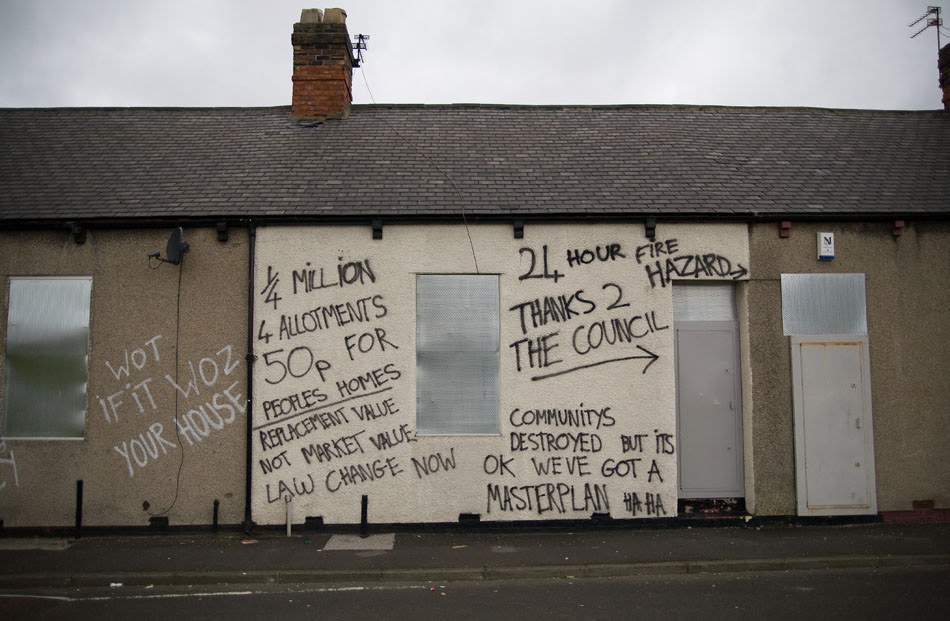 WOT
IF IT WOZ
YOUR HOUSE
1/4 MILLION
4 ALLOTMENTS
50p FOR
PEOPLES HOMES
REPLACEMENT VALUE
NOT MARKET VALUE
LAW CHANGE NOW
24 HOUR FIRE
HAZARD
THANKS 2
THE COUNCIL
COMMUNITYS
DESTROYED BUT ITS
OK WE'VE GOT A
MASTERPLAN HA HA